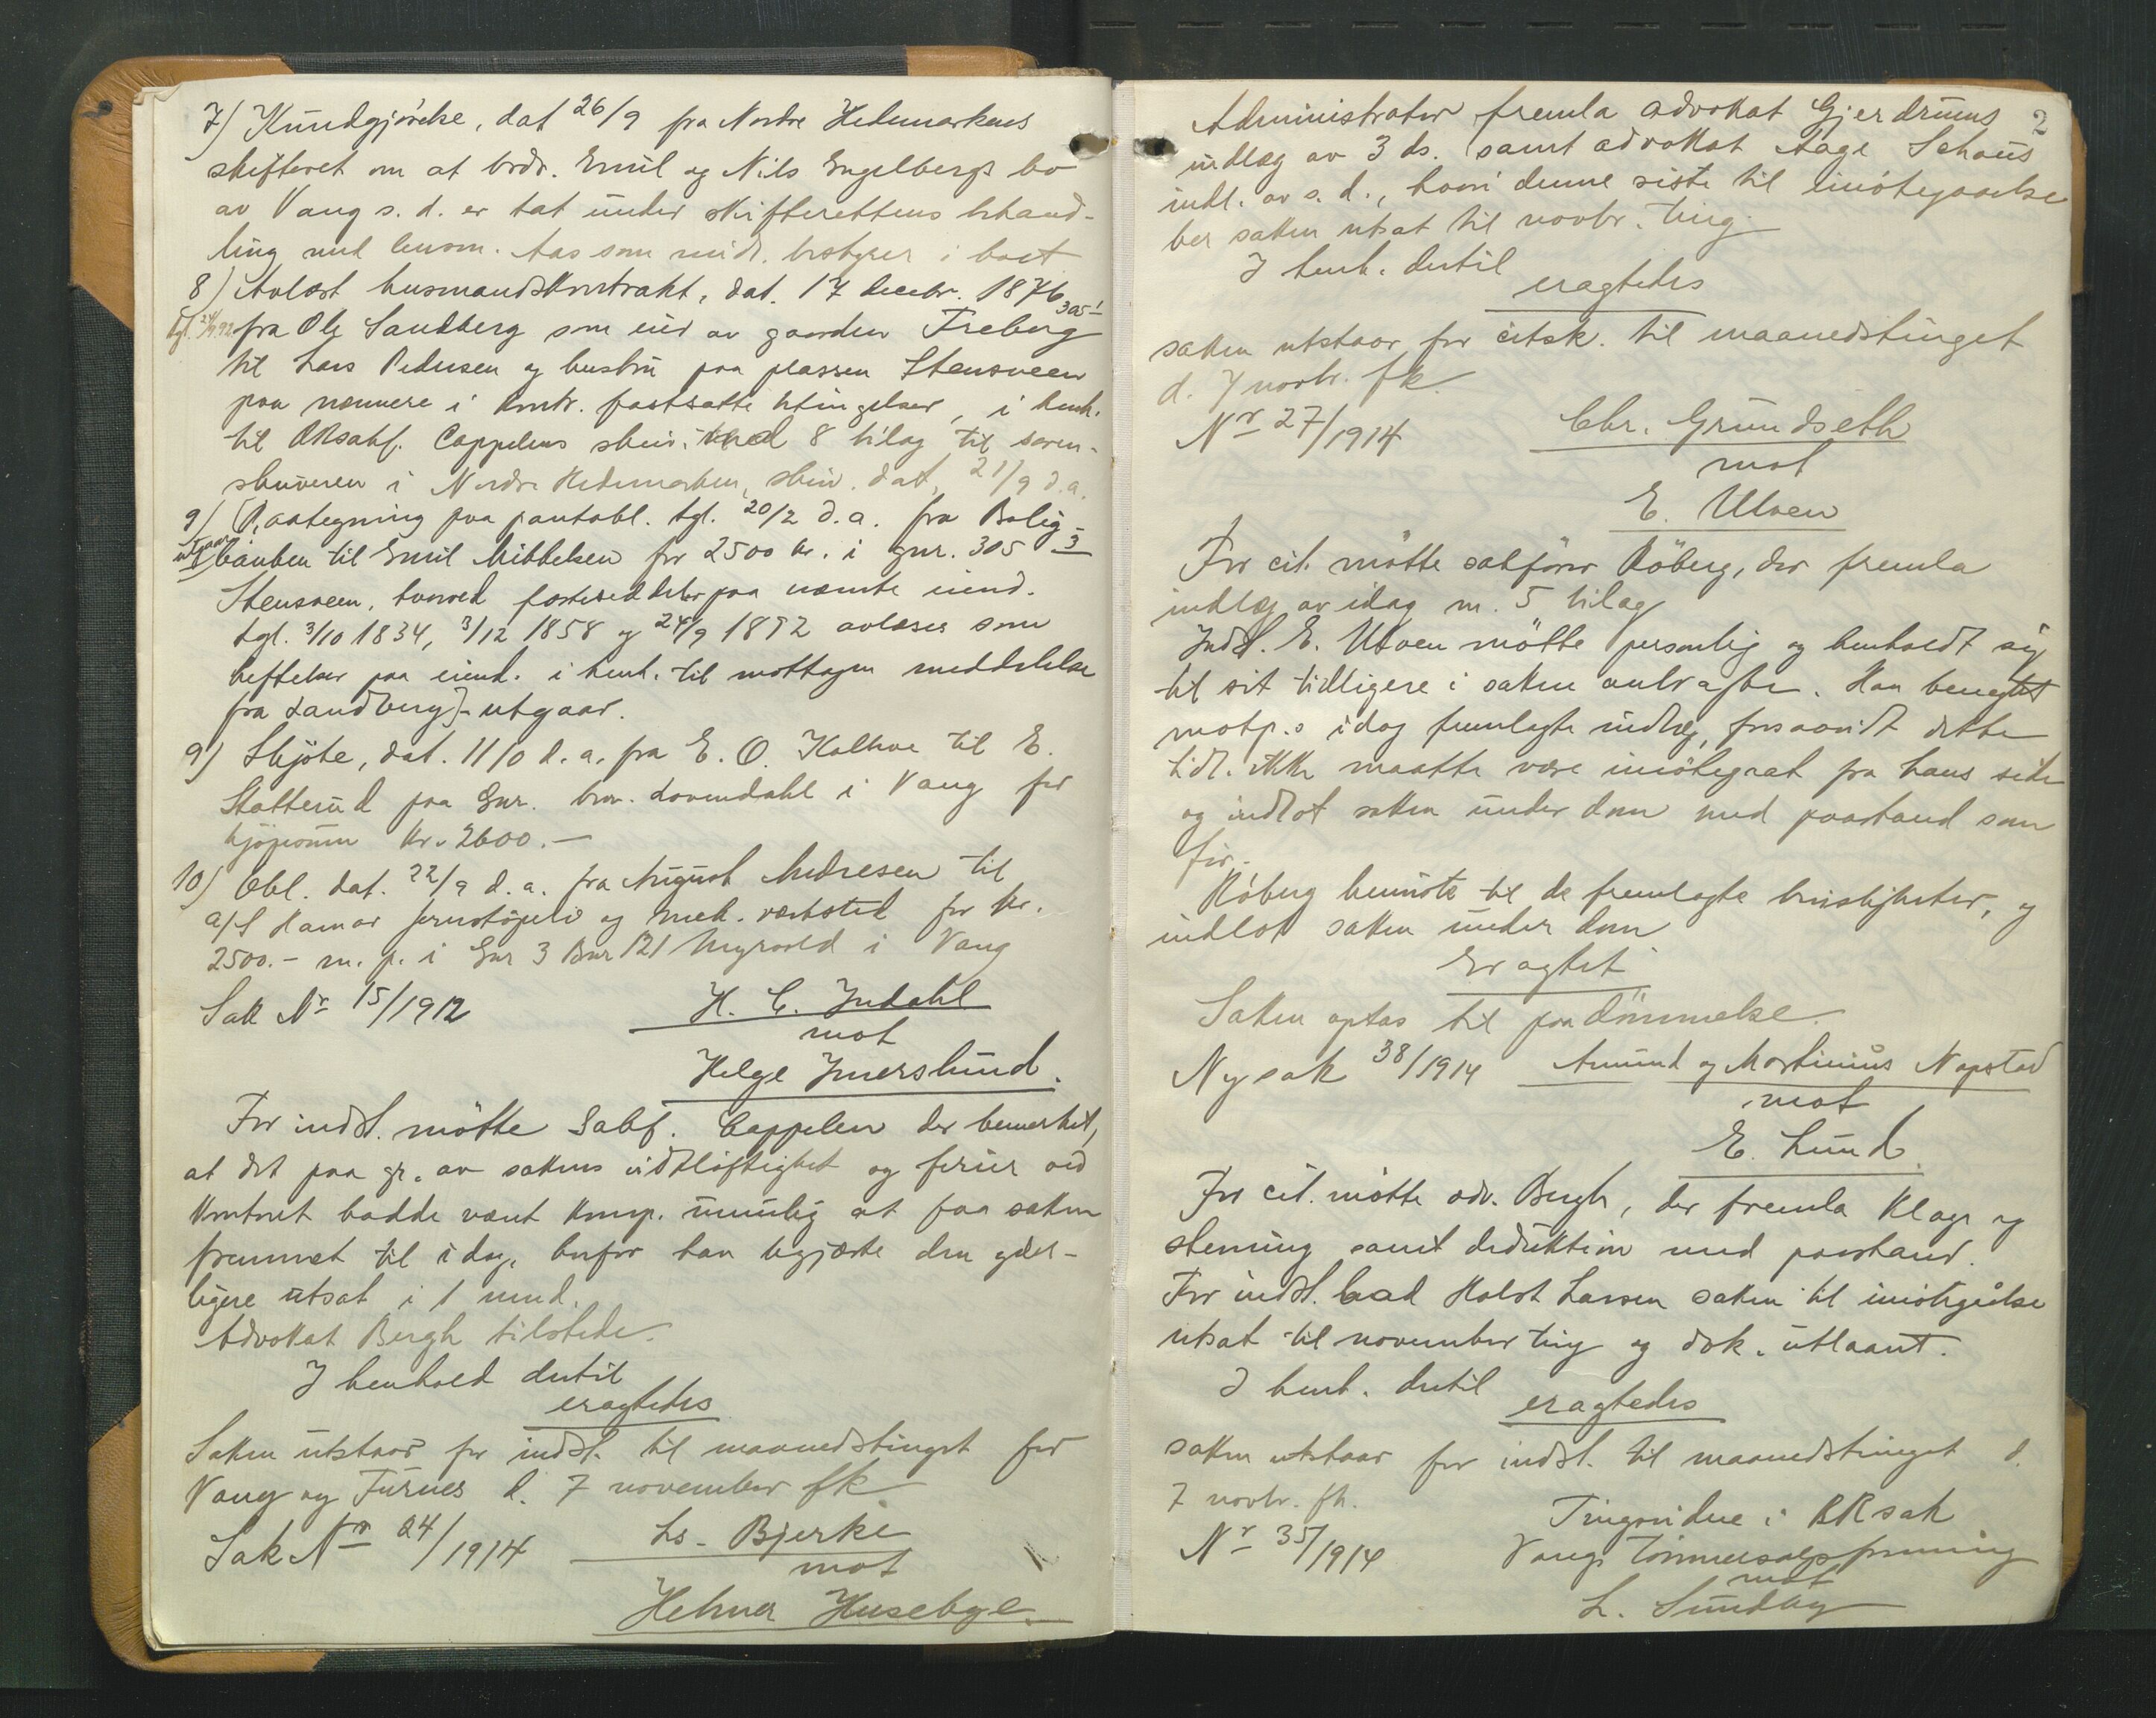 7) Kundgjørelse, dat 26/9 fra Nordre Hedemarkens
skifteret om at brdr. Emil og Nils Engelbergs bo
av Vang s. d. er tat under skifterettens behand-
ling med lensm. Aas som midl. bestyrer i boet
8) Avlæst husmandskontrakt, dat. 17 decbr. 1876
tgl. fra Ole Sandberg som eier av gaarden Freberg 305 1
til Lars Pedersen og hustru paa plassen Stensveen
paa nærmere i kontr. fastsatte betingelser, i henh.
til ORsakf. Cappelens skriv. med 8 bilag til soren-
skriveren i Nordre Hedemarken, skriv. dat. 21/9 d.a.
9) (Paategning paa pantobl. tgl. 20/2 d.a. fra Bolig-
utgaar banken til Emil Mikkelsen for 2500 kr. i gnr. 305 3
Stensveen, hvorved fæstesedler paa nævnte eiend.
tgl. 3/10 1834, 3/12 1858 og 24/9 1892 avlæses som
heftelser paa eiend. i henh. til mottagen meddelelse
fra Sandberg) - utgaar.
9) Skjøte, dat. 11/0 d.a. fra E. O. Kolhoe til E.
Statterud paa Gnr. bnr. Lovendahl i Vang for
kjøpesum kr. 2600.-
10) Obl. dat. 22/9 d.a. fra August Andresen til
a/S Hamar jernstøperi og mek. verksted for kr.
2500.- m. p. i Gnr 3 Bnr 121 Myrvold i Vang
Sak Nr 15/1912 H. C. Indahl
mot
Helge Imerslund.
For indst. møtte Sakf. Cappelen der bemerket,
at det paa gr. av sakens vidtløftighet og ferier ved
kontoret hadde været komp. umulig at faa saken
fremmet til idag, hvorfor han begjærte den yder-
ligere utsat i 1 mnd.
Advokat Bergh tilstede.
I henhold dertil
eragtedes
Saken utstaar for indst. til maanedstinget for
Vang og Furnes d. 7 november fk
Sak Nr 24/1914 Ls. Bjerke
mot
Helmer Husebye
2
Administrator fremla advokat Gjerdrums
indlæg av 3 ds. samt advokat Aage Schous
indl. av s. d., hvori denne siste til imøtegaaelse
ber saken utsat til novbr. ting.
I henh. dertil
eragtedes
saken utstaar for citsk. til maanedstinget
d. 7 novbr. fk
Nr 27/1914 Chr. Grundseth
mot
E. Ulven
For cit. møtte sakfører Röberg, der fremla
indlæg av idag m. 5 bilag
Indst. E. Ulven møtte personlig og henholdt sig
til sit tidligere i saken anbragte. Han benegtet
motp.s idag fremlagte indlæg, forsaavidt dette
tidl. ikke maatte være imøtegaat fra hans side
og indlot saken under dom med paastand som
før.
Röberg henviste til de fremlagte bevisligheter, og
indlot saken under dom
Eragtet
Saken optas til paadömmelse.
Ny sak 38/1914 Amund og Martinius Nopstad
mot
E. Lund.
For cit. møtte adv. Bergh, der fremla klage og
stevning samt deduktion med paastand.
For indst. bad Holst Larsen saken til imøtegåelse
utsat til november ting og dok. utlaant.
I henh. dertil
eragtedes
saken utstaar for indst. til maanedstinget d.
7 novbr. fk.
Nr 35/1914 Tingsvidne i ORsak
Vangs tömmersalgsforening
mot
L. Sundby